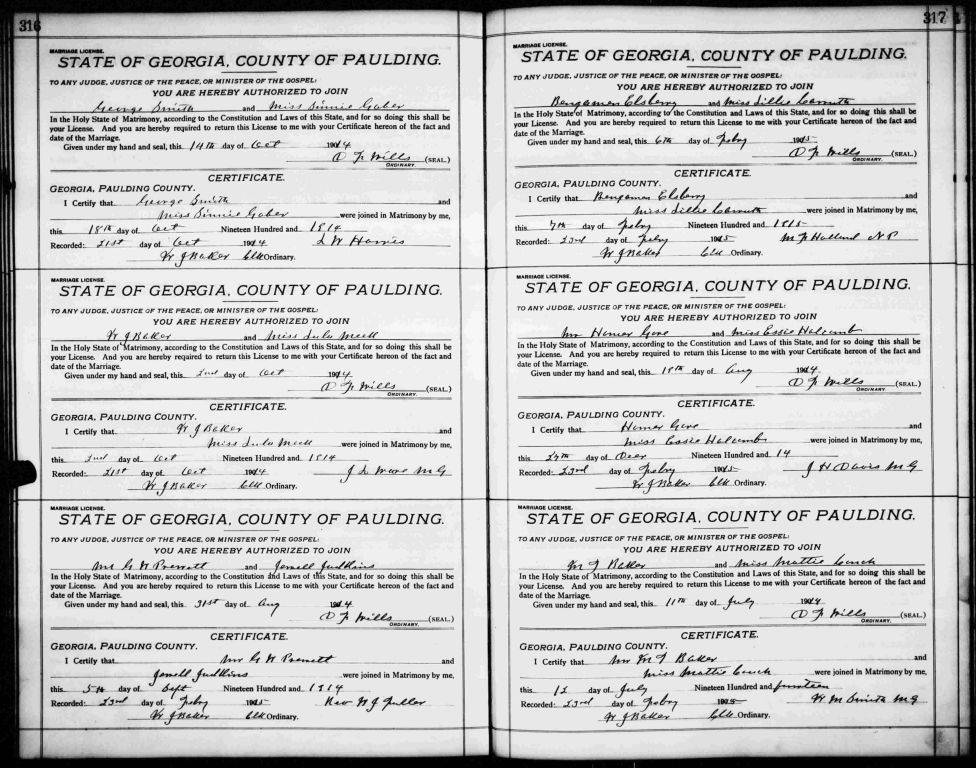 316
MARRIAGE LICENSE.
STATE OF GEORGIA, COUNTY OF PAULDING.
TO ANY JUDGE, JUSTICE OF THE PEACE, OR MINISTER OF THE GOSPEL:
YOU ARE HEREBY AUTHORIZED TO JOIN
George Smith and Miss Binnie Gaber
In the Holy State of Matrimony, according to the Constitution and Laws of this State, and for so doing this shall be
your License. And you are hereby required to return this License to me with your Certificate hereon of the fact and
date of the Marriage.
Given under my hand and seal, this 14th day of Oct 1914
D F Wills (SEAL.)
ORDINARY.
CERTIFICATE.
GEORGIA, PAULDING COUNTY.
I Certify that George Smith and
Miss Binnie Gaber were joined in Matrimony by me,
this 18th day of Oct Nineteen Hundred and 1914
Recorded: 21st day of Oct 1914 L W Harris
W J Baker Clk Ordinary.
MARRIAGE LICENSE.
STATE OF GEORGIA, COUNTY OF PAULDING.
TO ANY JUDGE, JUSTICE OF THE PEACE, OR MINISTER OF THE GOSPEL:
YOU ARE HEREBY AUTHORIZED TO JOIN
W J Baker and Miss Lula Meek
In the Holy State of Matrimony, according to the Constitution and Laws of this State, and for so doing this shall be
your License. And you are hereby required to return this License to me with your Certificate hereon of the fact and
date of the Marriage.
Given under my hand and seal, this 2nd day of Oct 1914
D F Wills (SEAL.)
ORDINARY.
CERTIFICATE.
GEORGIA, PAULDING COUNTY.
I Certify that W J Baker and
Miss Lula Meek were joined in Matrimony by me,
this 2nd day of Oct Nineteen Hundred and 1914
Recorded: 21st day of Oct 1914 J L M G
W J Baker Clk Ordinary.
MARRIAGE LICENSE.
STATE OF GEORGIA, COUNTY OF PAULDING.
TO ANY JUDGE, JUSTICE OF THE PEACE, OR MINISTER OF THE GOSPEL:
YOU ARE HEREBY AUTHORIZED TO JOIN
Mr G W and Jewell Judkins
In the Holy State of Matrimony, according to the Constitution and Laws of this State, and for so doing this shall be
your License. And you are hereby required to return this License to me with your Certificate hereon of the fact and
date of the Marriage.
Given under my hand and seal, this 31st day of Aug 1914
D F Wills (SEAL.)
ORDINARY.
CERTIFICATE.
GEORGIA, PAULDING COUNTY.
I Certify that Mr G W and
Jewell Judkins were joined in Matrimony by me,
this 5th day of Sept Nineteen Hundred and 1914
Recorded: 23rd day of Feby 1915 Rev W J Fuller
W J Baker Clk Ordinary.
317
MARRIAGE LICENSE.
STATE OF GEORGIA, COUNTY OF PAULDING.
TO ANY JUDGE, JUSTICE OF THE PEACE, OR MINISTER OF THE GOSPEL:
YOU ARE HEREBY AUTHORIZED TO JOIN
Bengamen Elsberry and Miss Lillie
In the Holy State of Matrimony, according to the Constitution and Laws of this State, and for so doing this shall be
your License. And you are hereby required to return this License to me with your Certificate hereon of the fact and
date of the Marriage.
Given under my hand and seal, this 6th day of Feby 1915
D F Wills (SEAL.)
ORDINARY.
CERTIFICATE.
GEORGIA, PAULDING COUNTY.
I Certify that Bengamen Elsberry and
Miss Lillie were joined in Matrimony by me,
this 7th day of Feby Nineteen Hundred and 1915
Recorded: 23rd day of Feby 1915 M F Holland N P
W J Baker Clk Ordinary.
MARRIAGE LICENSE.
STATE OF GEORGIA, COUNTY OF PAULDING.
TO ANY JUDGE, JUSTICE OF THE PEACE, OR MINISTER OF THE GOSPEL:
YOU ARE HEREBY AUTHORIZED TO JOIN
Mr Homer Gore and Miss Essie Holcomb
In the Holy State of Matrimony, according to the Constitution and Laws of this State, and for so doing this shall be
your License. And you are hereby required to return this License to me with your Certificate hereon of the fact and
date of the Marriage.
Given under my hand and seal, this 19th day of Aug 1914
D F Wills (SEAL.)
ORDINARY.
CERTIFICATE.
GEORGIA, PAULDING COUNTY.
I Certify that Homer Gore and
Miss Essie Holcomb were joined in Matrimony by me,
this 27th day of Decr Nineteen Hundred and 14
Recorded: 23rd day of Feby 1915 J H Davis M G
W J Baker Clk Ordinary.
MARRIAGE LICENSE.
STATE OF GEORGIA, COUNTY OF PAULDING.
TO ANY JUDGE, JUSTICE OF THE PEACE, OR MINISTER OF THE GOSPEL:
YOU ARE HEREBY AUTHORIZED TO JOIN
M F Baker and Miss Mattie Couch
In the Holy State of Matrimony, according to the Constitution and Laws of this State, and for so doing this shall be
your License. And you are hereby required to return this License to me with your Certificate hereon of the fact and
date of the Marriage.
Given under my hand and seal, this 11th day of July 1914
D F Wills (SEAL.)
ORDINARY.
CERTIFICATE.
GEORGIA, PAULDING COUNTY.
I Certify that Mr M F Baker and
Miss Mattie Couch were joined in Matrimony by me,
this 12 day of July Nineteen Hundred and fourteen
Recorded: 23rd day of Feby 1915 W M Smith M G
W J Baker Clk Ordinary.